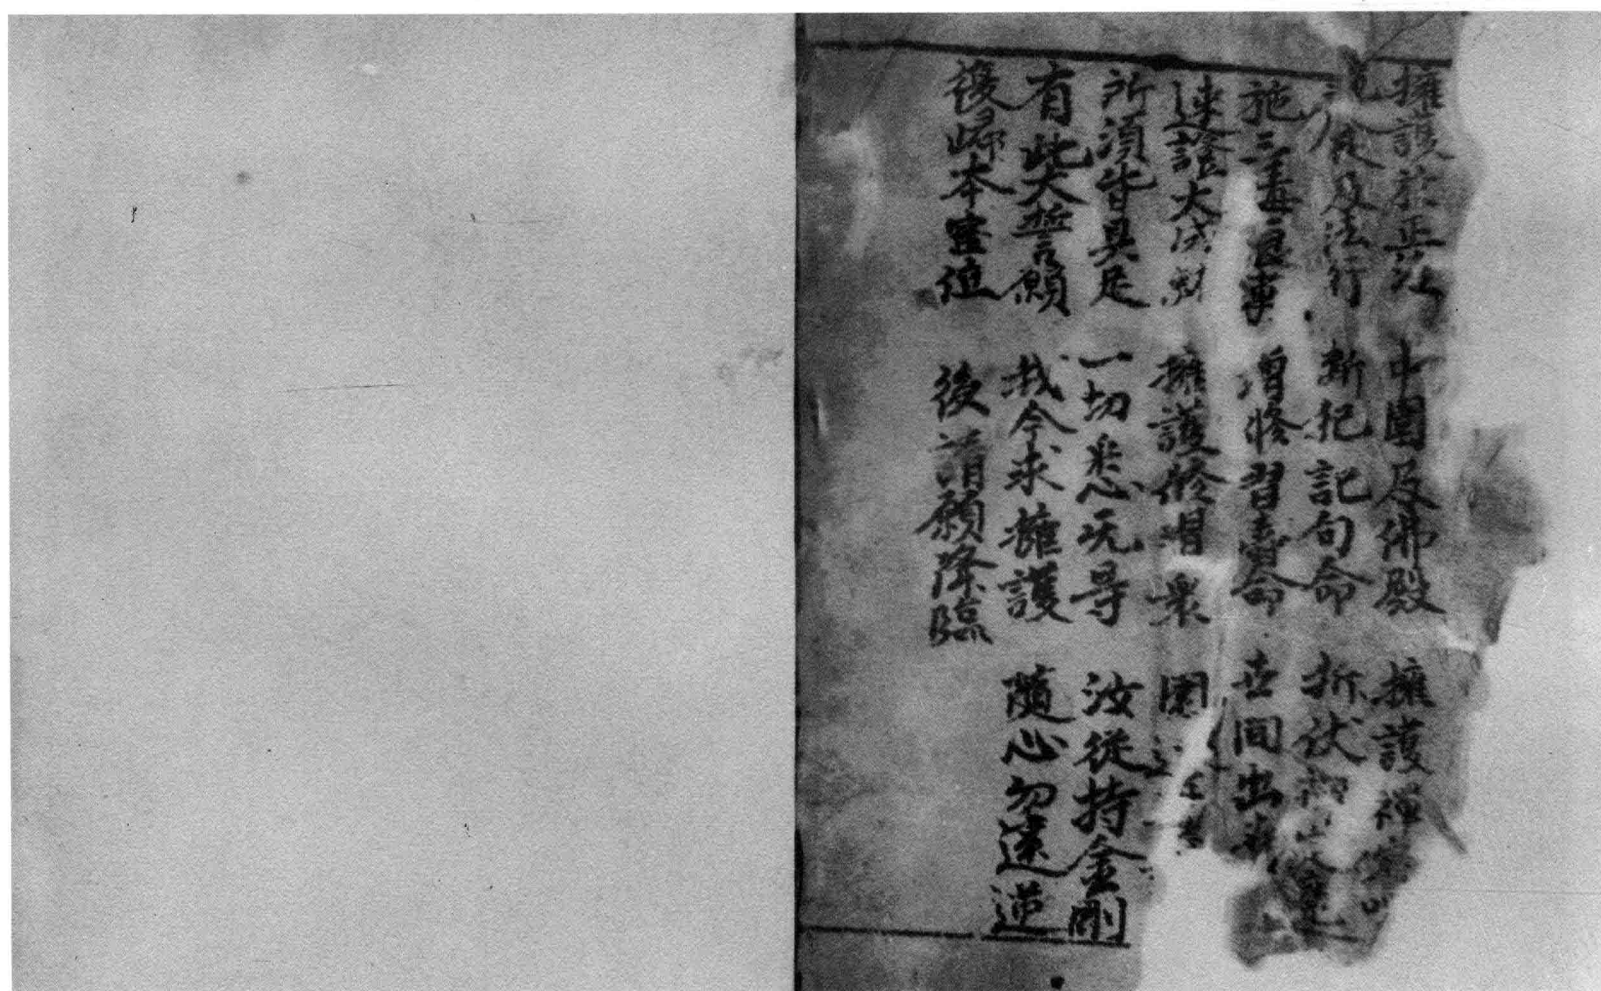 擁護於正法 中圍及佛殿 擁護禪
及法行 新犯記句命 折伏
施三毒食事 增修習壽命 世間出
速證大成就 擁護修習眾 圍
所須皆具足 一切悉无导 汝從持金剛
有此大誓願 我今求擁護 隨心勿違逆
復歸本宮位 後請願降臨